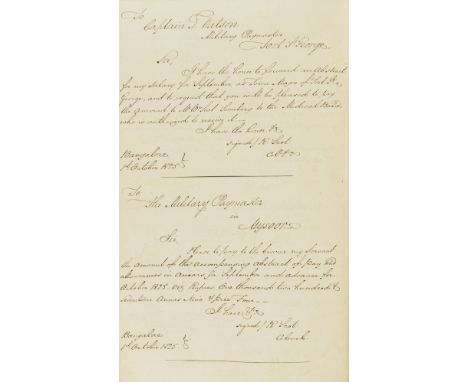 To
Captain T. Watson
Military Paymaster
Fort St George
Sir,
I have the honor to forward an Abstract
for my Salary for September as Town Major of Fort St
George, and to request that you will be pleased to pay
the amount to Mr Scot Secretary to the Medical Board
who is authorized to receive it—
I have the honor &c
signed/ W Scot
Bangalore
1st October 1825
To
The Military Paymaster
in
Mysoor
Sir,
Please to pay to the bearer my servant
the amount of the accompanying abstract of Pay and
Allowances in arrears for September and advance for
October 1825. viz Rupees One thousand two hundred &
Annas Nine & pice
I have &c
signed/ W Scot
Colonel
Bangalore
1st October 1825